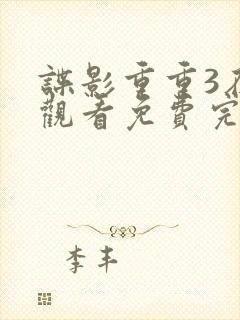 諜影重重3
觀看免費完
李丰